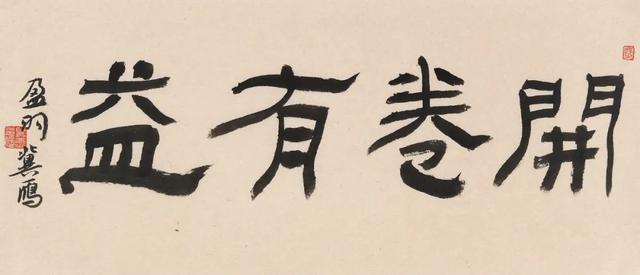 開卷有益
盈明 冀鴈